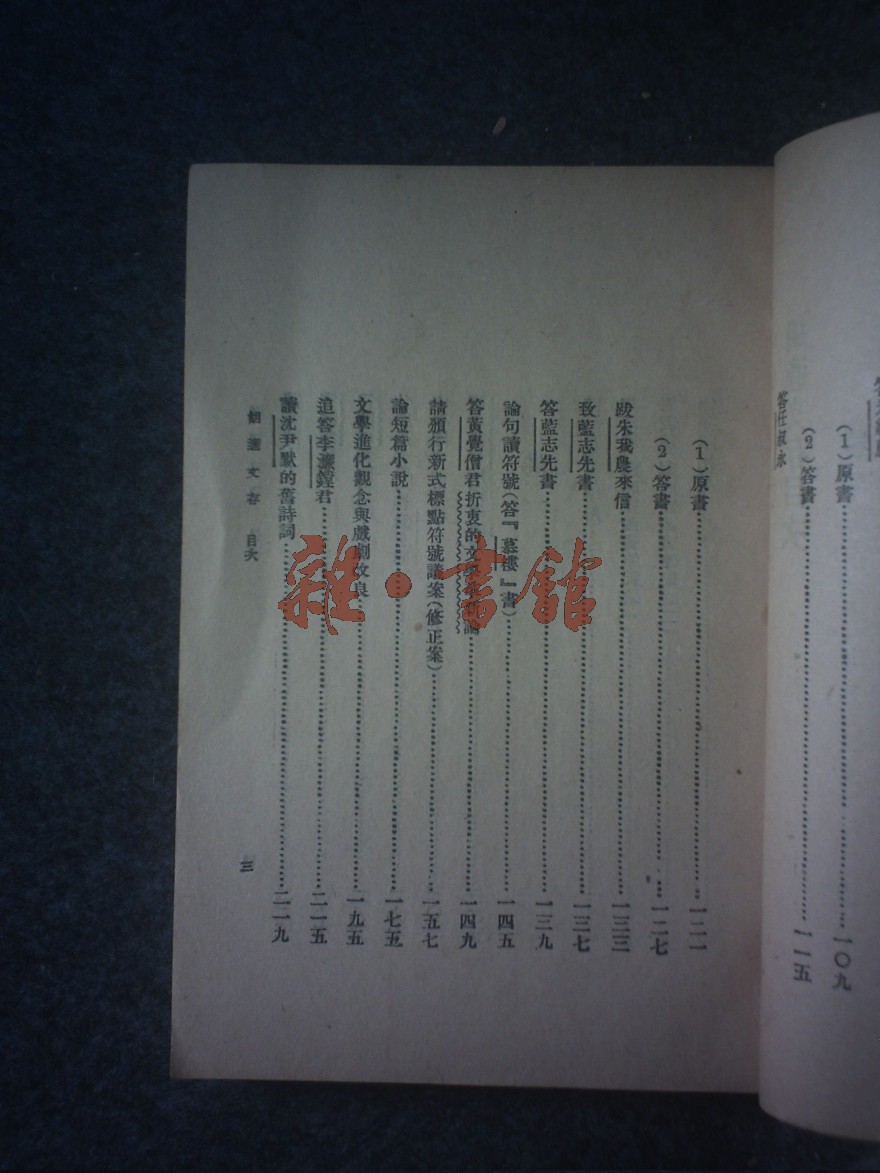 (1)原書…………一〇九
(2)答書…………一一五
答任叔永
(1)原書…………一二一
(2)答書…………一二七
跋朱我農來信…………一三三
致藍志先書…………一三七
答藍志先書…………一三九
論句讀符號(答『慕樓』書)…………一四五
答黃覺僧君折衷的文學革新論…………一四九
請頒行新式標點符號議案(修正案)…………一五七
論短篇小說…………一七五
文學進化觀念與戲劇改良…………一九五
追答李濂鏜君…………二一五
讀沈尹默的舊詩詞…………二一九
胡適文存 目次
三
雜·書館